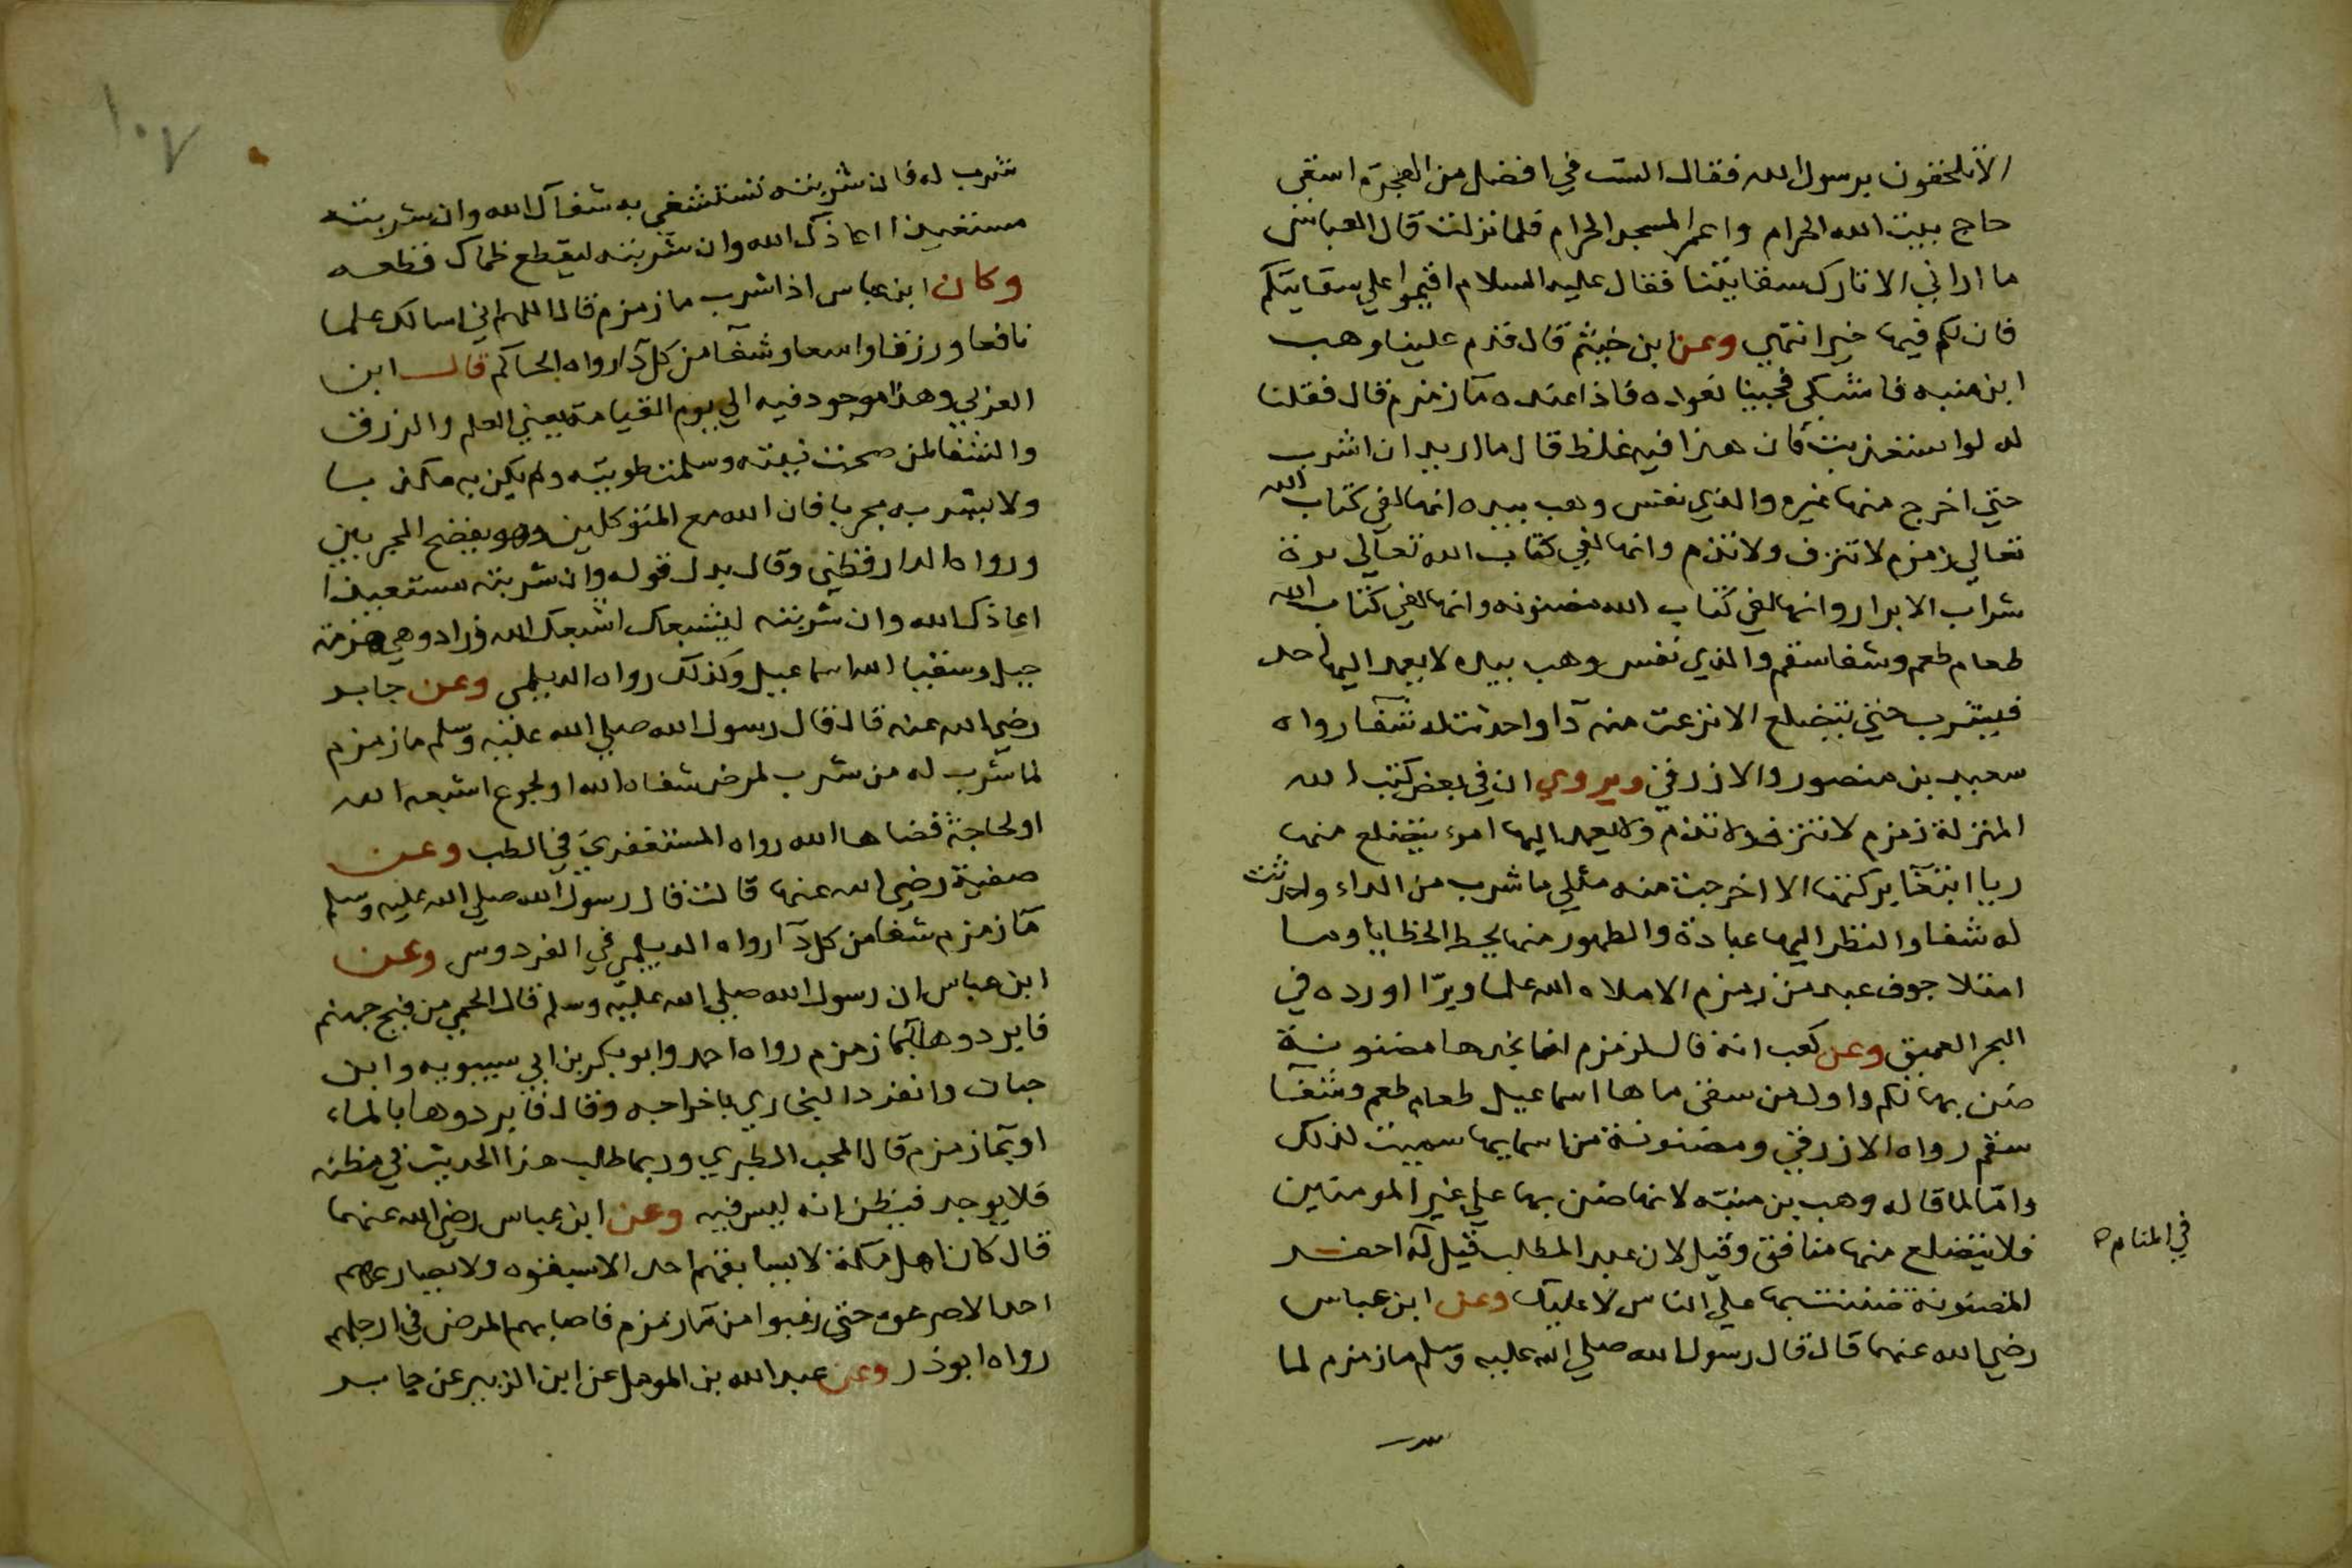 الا تلحقون برسول الله فقال الست في افضل من الهجرة اسقي
حاج بيت الله الحرام واعمر المسجد الحرام فلما نزلت قال العباس
ما اراني الا تارك سقايتنا فقال عليه السلام اقيموا علي سقايتكم
فان لكم فيها خيرا انتهي وعن ابن خيثم قال قدم علينا وهب
ابن منبه فاشتكي فجينا نعوده فاذا عنده مآ زمزم قال فقلنا
له لو استعذبت فان هذا فيه غلظ قال ما اريد ان اشرب
حتي اخرج منها غيره والذي نفس وهب بيده انها لفي كتاب الله
تعالي زمزم لا تنزف ولا تذم وانها لفي كتاب الله تعالي برة
شراب الابرار وانها لفي كتاب الله مضنونه وانها لفي كتاب الله
طعام طعم وشفا سقم والذي نفس وهب بيده لا يعمد اليها احد
فيشرب حتي يتضلع الا نزعت منه دآ واحدثت له شفآ رواه
سعيد بن منصور والازرقي ويروي ان في بعض كتب الله
المنزلة زمزم لا تنزف ولا تذم ولا يعمد اليها امرء يتضلع منها
ريا ابتغآ بركتها الا اخرجت منه مثلي ما شرب من الداء واحدثت
له شفا والنظر اليها عبادة والطهور منها يحط الخطايا وما
امتلا جوف عبد من زمزم الا ملاه الله علما وبرّا اورده في
البحر العميق وعن كعب انه قال لزمزم انا نجدها مضنونة
ضن بها لكم واول من سقي ماها اسماعيل طعام طعم وشفآ
سقم رواه الازرقي ومضنونة من اسمايها سميت لذلك
وامّا لما قاله وهب بن منبّه لانها ضن بها علي غير المومنين
فلا يتضلع منها منافق وقيل لان عبد المطلب قيل له احفر
في المنام ه
المضنونة ضننت بها علي الناس لا عليك وعن ابن عباس
رضي الله عنهما قال قال رسول الله صلي الله عليه وسلم ما زمزم لما
١٠٧
شرب له فان شربته تستشفي به شفآك الله وان شربته
مستعيذا اعاذك الله وان شربته ليقطع ظماك قطعه
وكان ابن عباس اذا شرب ما زمزم قال اللهم اني اسالك علما
نافعا ورزقا واسعا وشفآ من كل دآ رواه الحاكم قال ابن
العربي وهذا موجود فيه الي يوم القيامة يعني العلم والرزق
والشفا لمن صحت نيته وسلمت طويته ولم يكن به مكذبا
ولا يشربه مجربا فان الله مع المتوكلين وهو يفضح المجربين
ورواه الدارقطني وقال بدل قوله وان شربته مستعيذا
اعاذك الله وان شربته ليشبعك اشبعك الله وزاد وهي هزمة
جبيل وسقيا الله اسماعيل وكذلك رواه الديلمي وعن جابر
رضي الله عنه قال قال رسول الله صلي الله عليه وسلم ما زمزم
لما شرب له من شرب لمرض شفاه الله او لجوع اشبعه الله
او لحاجة قضاها الله رواه المستغفري في الطب وعن
صفية رضي الله عنها قالت قال رسول الله صلي الله عليه وسلم
مآ زمزم شفا من كل دآ رواه الديلمي في الفردوس وعن
ابن عباس ان رسول الله صلي الله عليه وسلم قال الحمي من فيح جهنم
فابردوها بمآ زمزم رواه احمد وابو بكر بن ابي وابن
حبان وانفرد البخاري باخراجه وقال فابردوها بالماء
او بمآ زمزم قال المحب الطبري وربما طلب هذا الحديث في مظنه
فلا يوجد فيظن انه ليس فيه وعن ابن عباس رضي الله عنهما
قال كان اهل مكة لا يسابقهم احد الا سبقوه ولا يصارعهم
احد الا صرعوه حتي رغبوا من مآ زمزم فاصابهم المرض في ارجلهم
رواه ابو ذر وعن عبد الله بن المومل عن ابن الزبير عن جابر